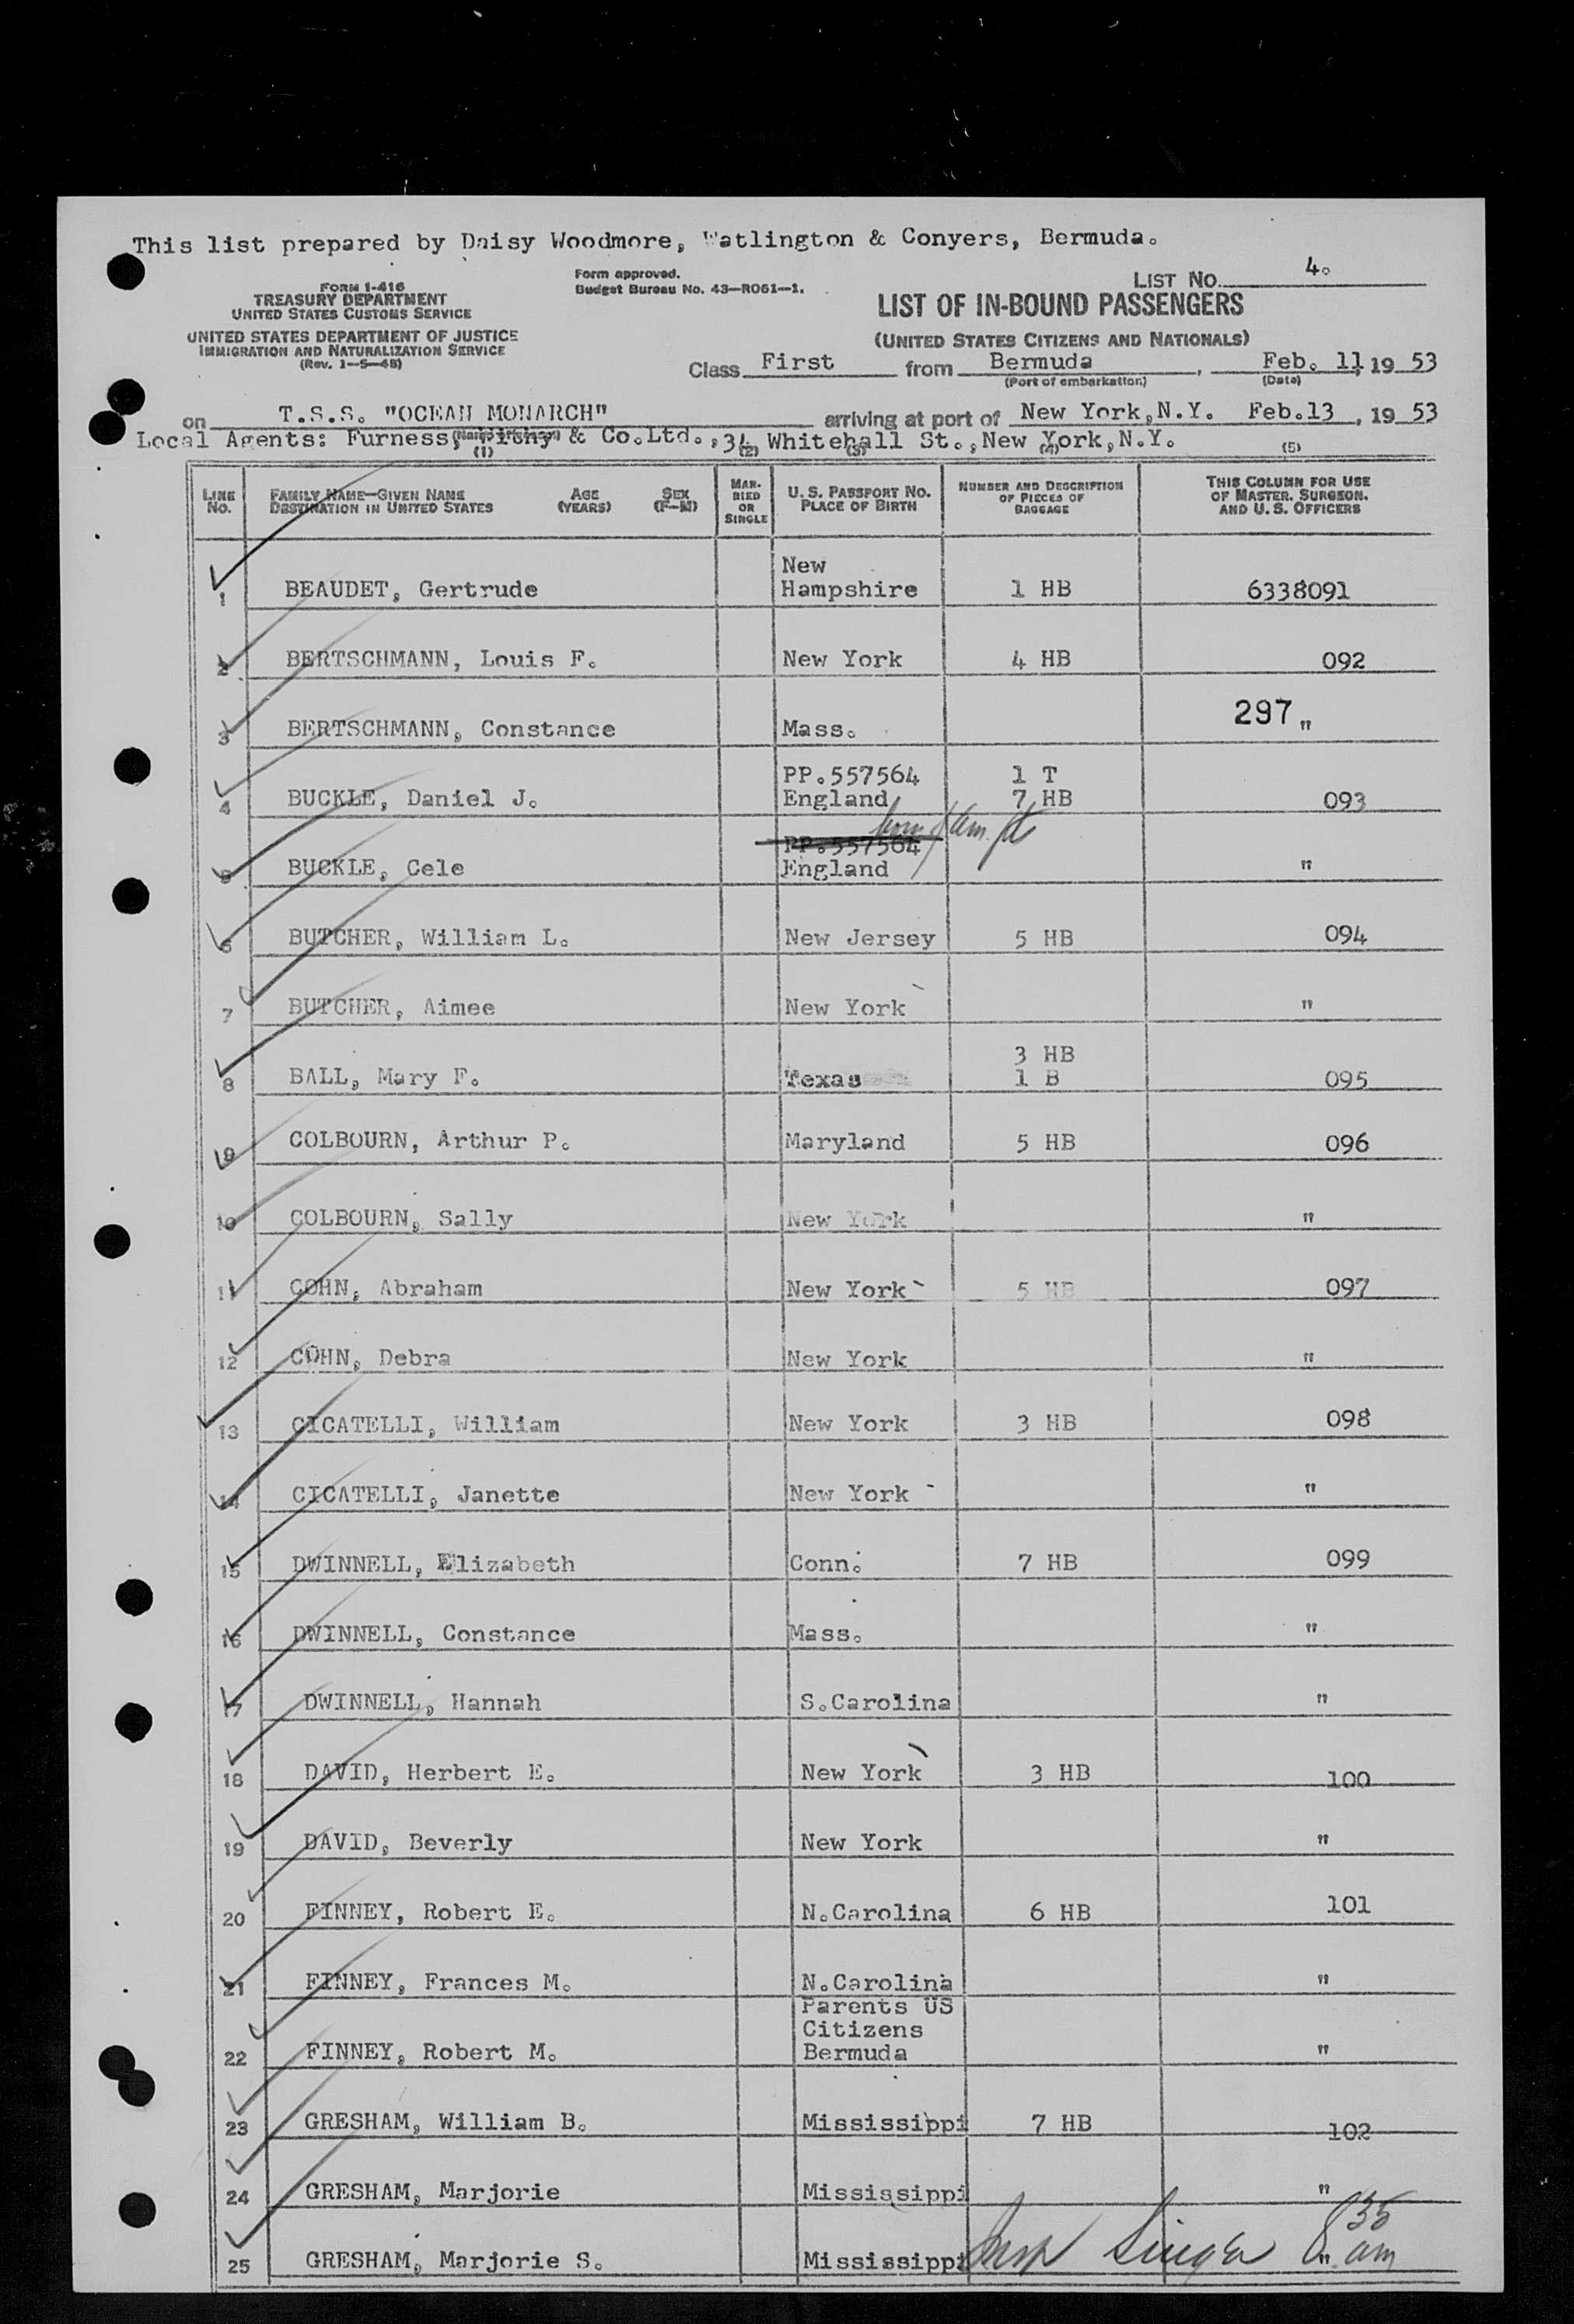 This list prepared by Daisy Woodmore, Watlington & Conyers, Bermuda.
FORM I-416
TREASURY DEPARTMENT
UNITED STATES CUSTOMS SERVICE
UNITED STATES DEPARTMENT OF JUSTICE
IMMIGRATION AND NATURALIZATION SERVICE
(Rev. 1-5-45)
Form approved.
Budget Bureau No. 43-R061-1.
LIST NO. 4.
LIST OF IN-BOUND PASSENGERS
(UNITED STATES CITIZENS AND NATIONALS)
Class First from Bermuda, Feb. 11, 19 53
(Port of embarkation) (Date)
on T.S.S. "OCEAN MONARCH" arriving at port of New York,N.Y. Feb.13, 19 53
Local Agents: Furness, Withy & Co.Ltd.,34 Whitehall St.,New York,N.Y.
(1) (2) (3) (4) (5)
LINE NO. FAMILY NAME—GIVEN NAME DESTINATION IN UNITED STATES AGE (YEARS) SEX (F-M) MARRIED OR SINGLE U. S. PASSPORT NO. PLACE OF BIRTH NUMBER AND DESCRIPTION OF PIECES OF BAGGAGE THIS COLUMN FOR USE OF MASTER, SURGEON, AND U. S. OFFICERS
1 BEAUDET, Gertrude New Hampshire 1 HB 6338091
2 BERTSCHMANN, Louis F. New York 4 HB 092
3 BERTSCHMANN, Constance Mass. 297 "
4 BUCKLE, Daniel J. PP.557564 England 1 T 7 HB 093
5 BUCKLE, Cele PP.557564 England "
6 BUTCHER, William L. New Jersey 5 HB 094
7 BUTCHER, Aimee New York "
8 BALL, Mary F. Texas 3 HB 1 B 095
9 COLBOURN, Arthur P. Maryland 5 HB 096
10 COLBOURN, Sally New York "
11 COHN, Abraham New York 5 HB 097
12 COHN, Debra New York "
13 CICATELLI, William New York 3 HB 098
14 CICATELLI, Janette New York "
15 DWINNELL, Elizabeth Conn. 7 HB 099
16 DWINNELL, Constance Mass. "
17 DWINNELL, Hannah S.Carolina "
18 DAVID, Herbert E. New York 3 HB 100
19 DAVID, Beverly New York "
20 FINNEY, Robert E. N.Carolina 6 HB 101
21 FINNEY, Frances M. N.Carolina "
22 FINNEY, Robert M. Parents US Citizens Bermuda "
23 GRESHAM, William B. Mississippi 7 HB 102
24 GRESHAM, Marjorie Mississippi "
25 GRESHAM, Marjorie S. Mississippi "
Insp Singer 8 35 am